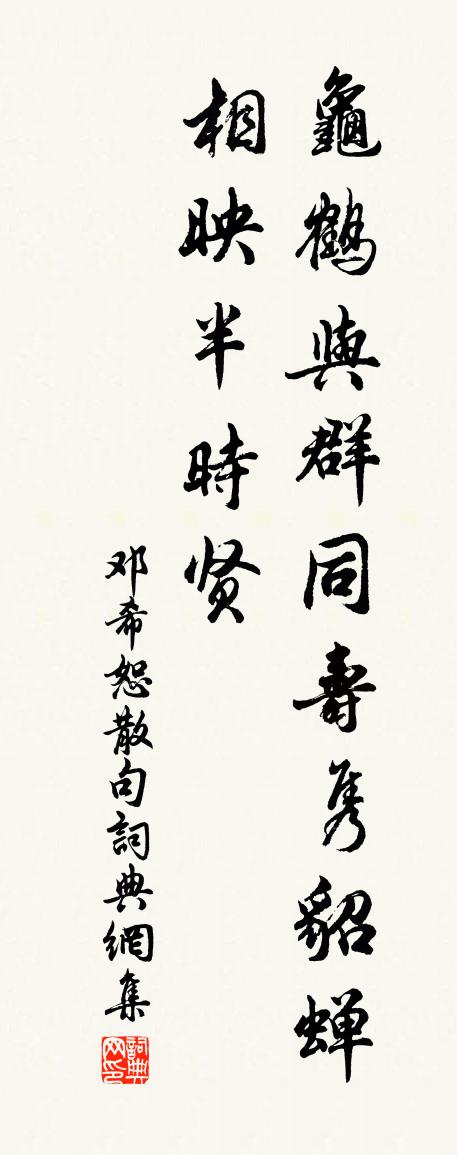 龜鶴與群同壽隽貂蝉
相映半時贤
邓希恕散句詞典網集
詞典网印